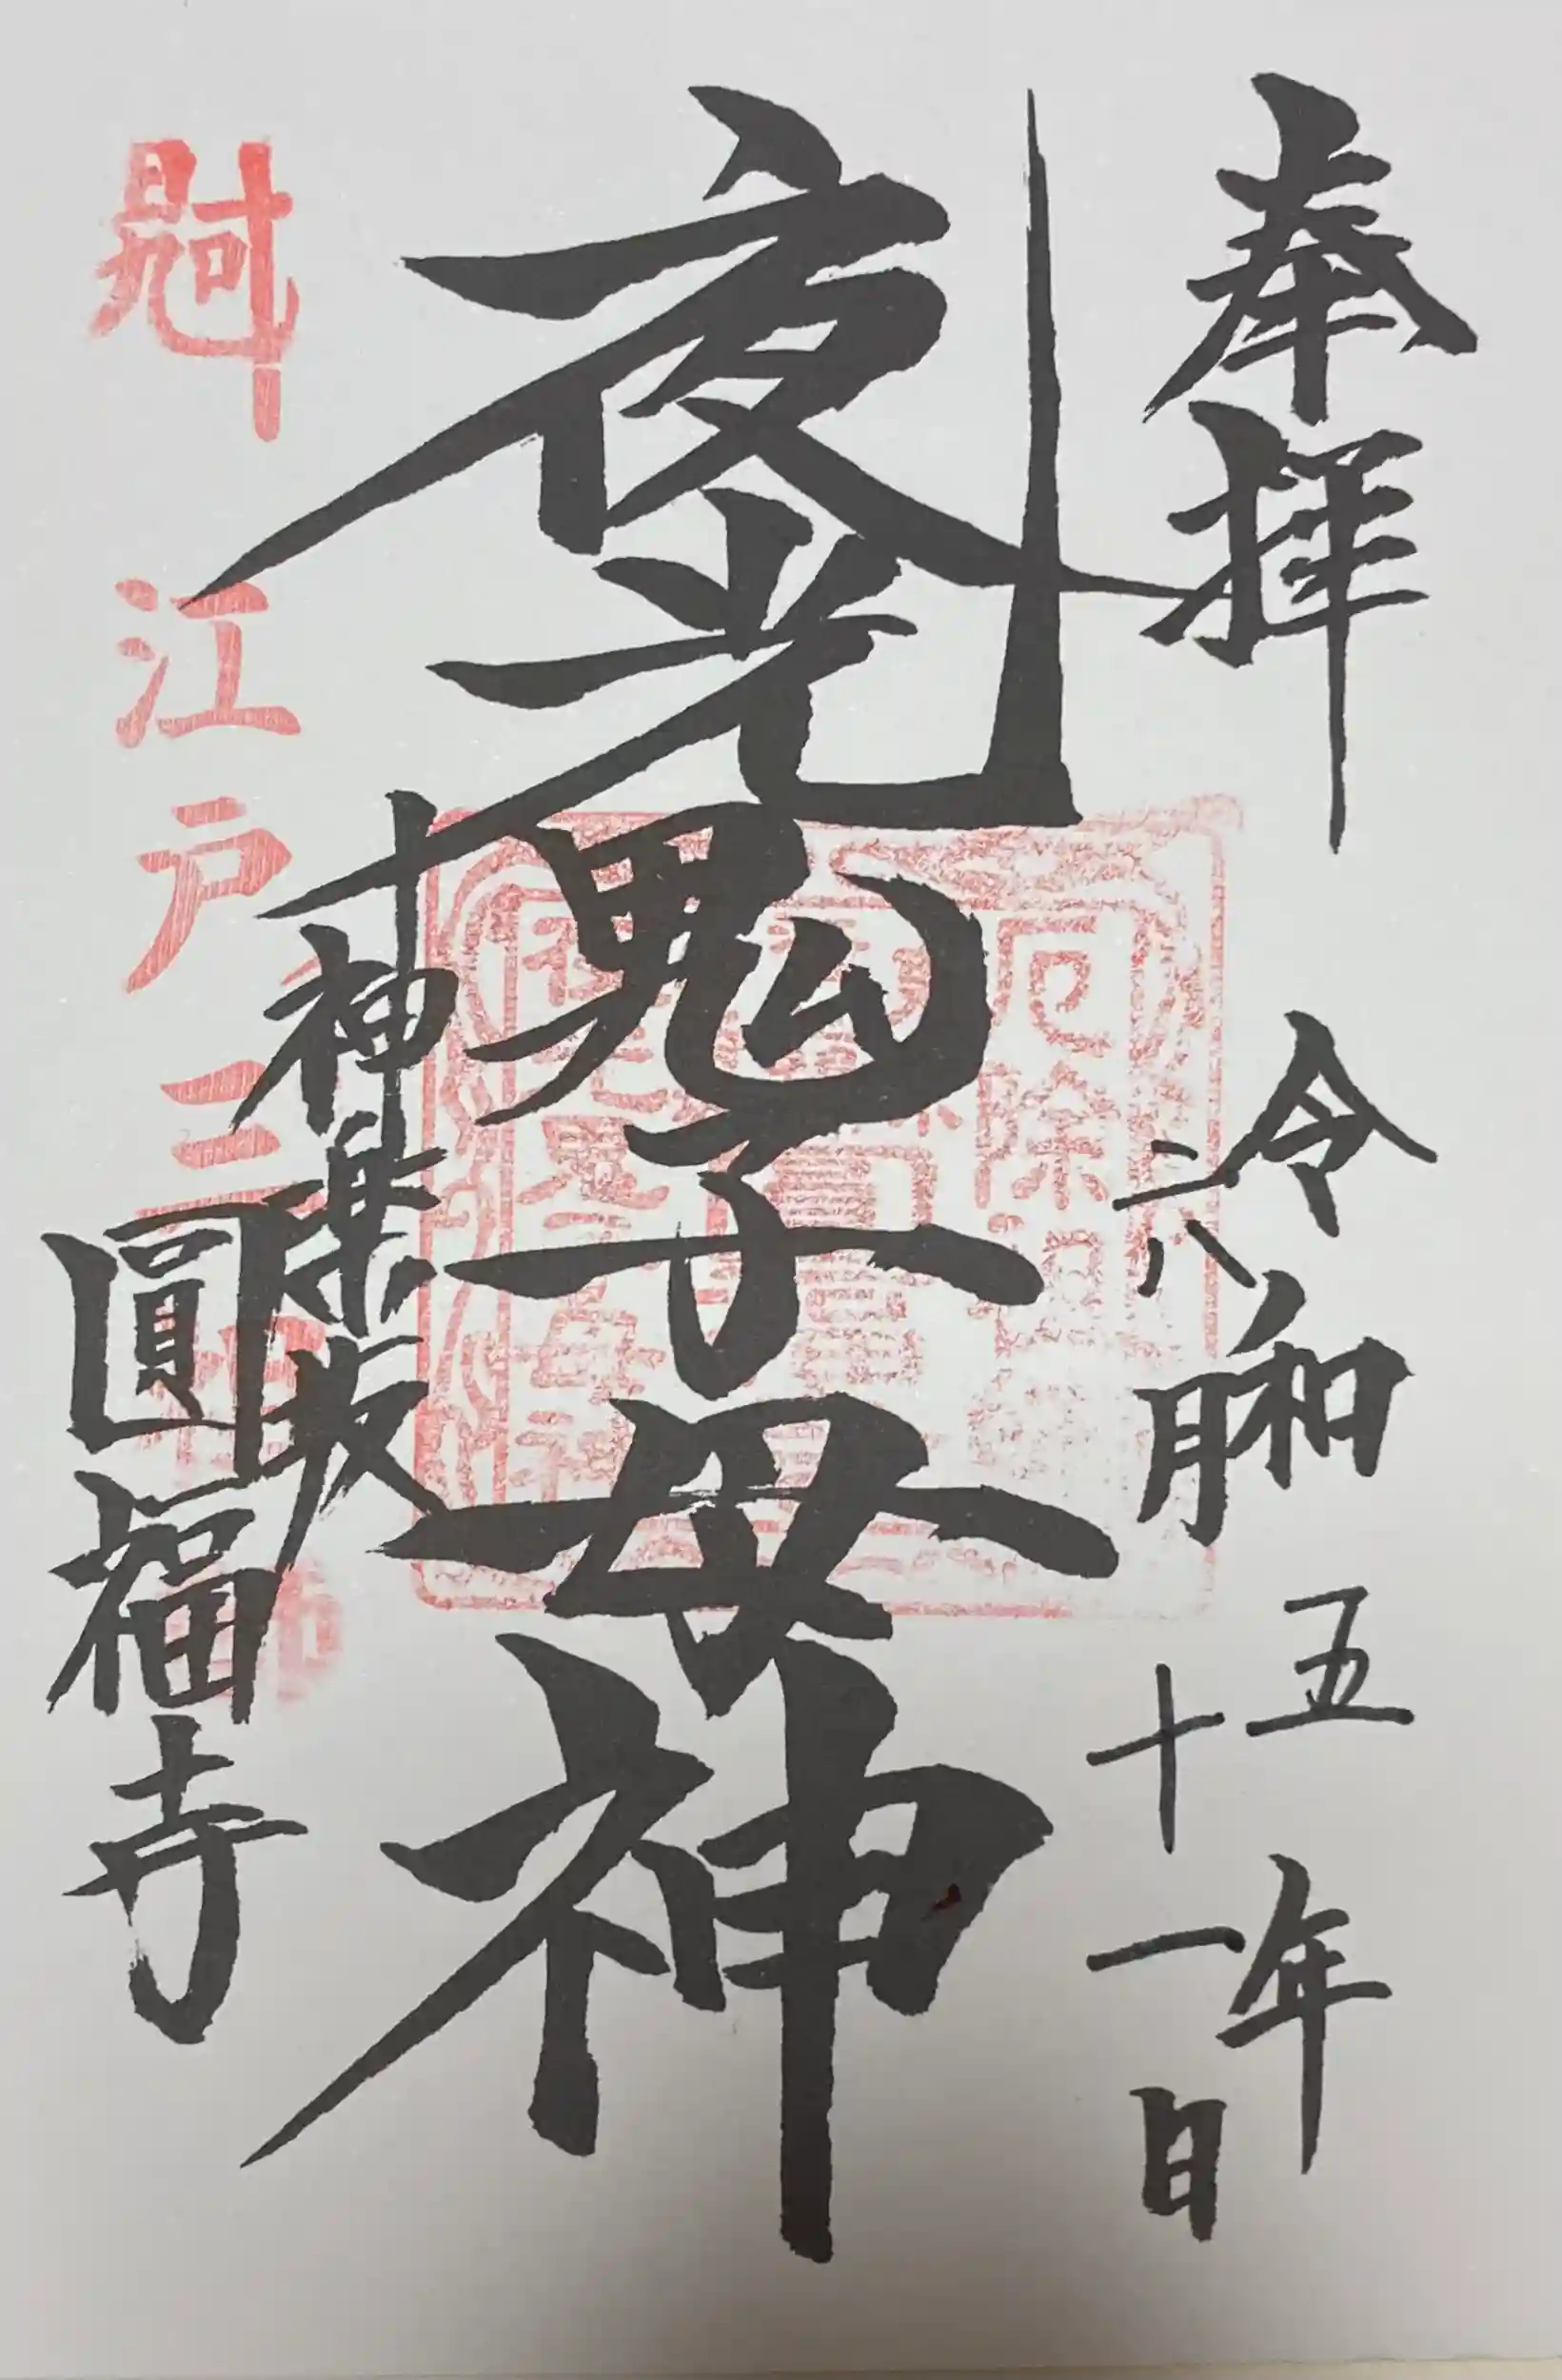 奉拝
令和五年
六月十一日
夜光鬼子母神
神楽坂
圓福寺
江戸三